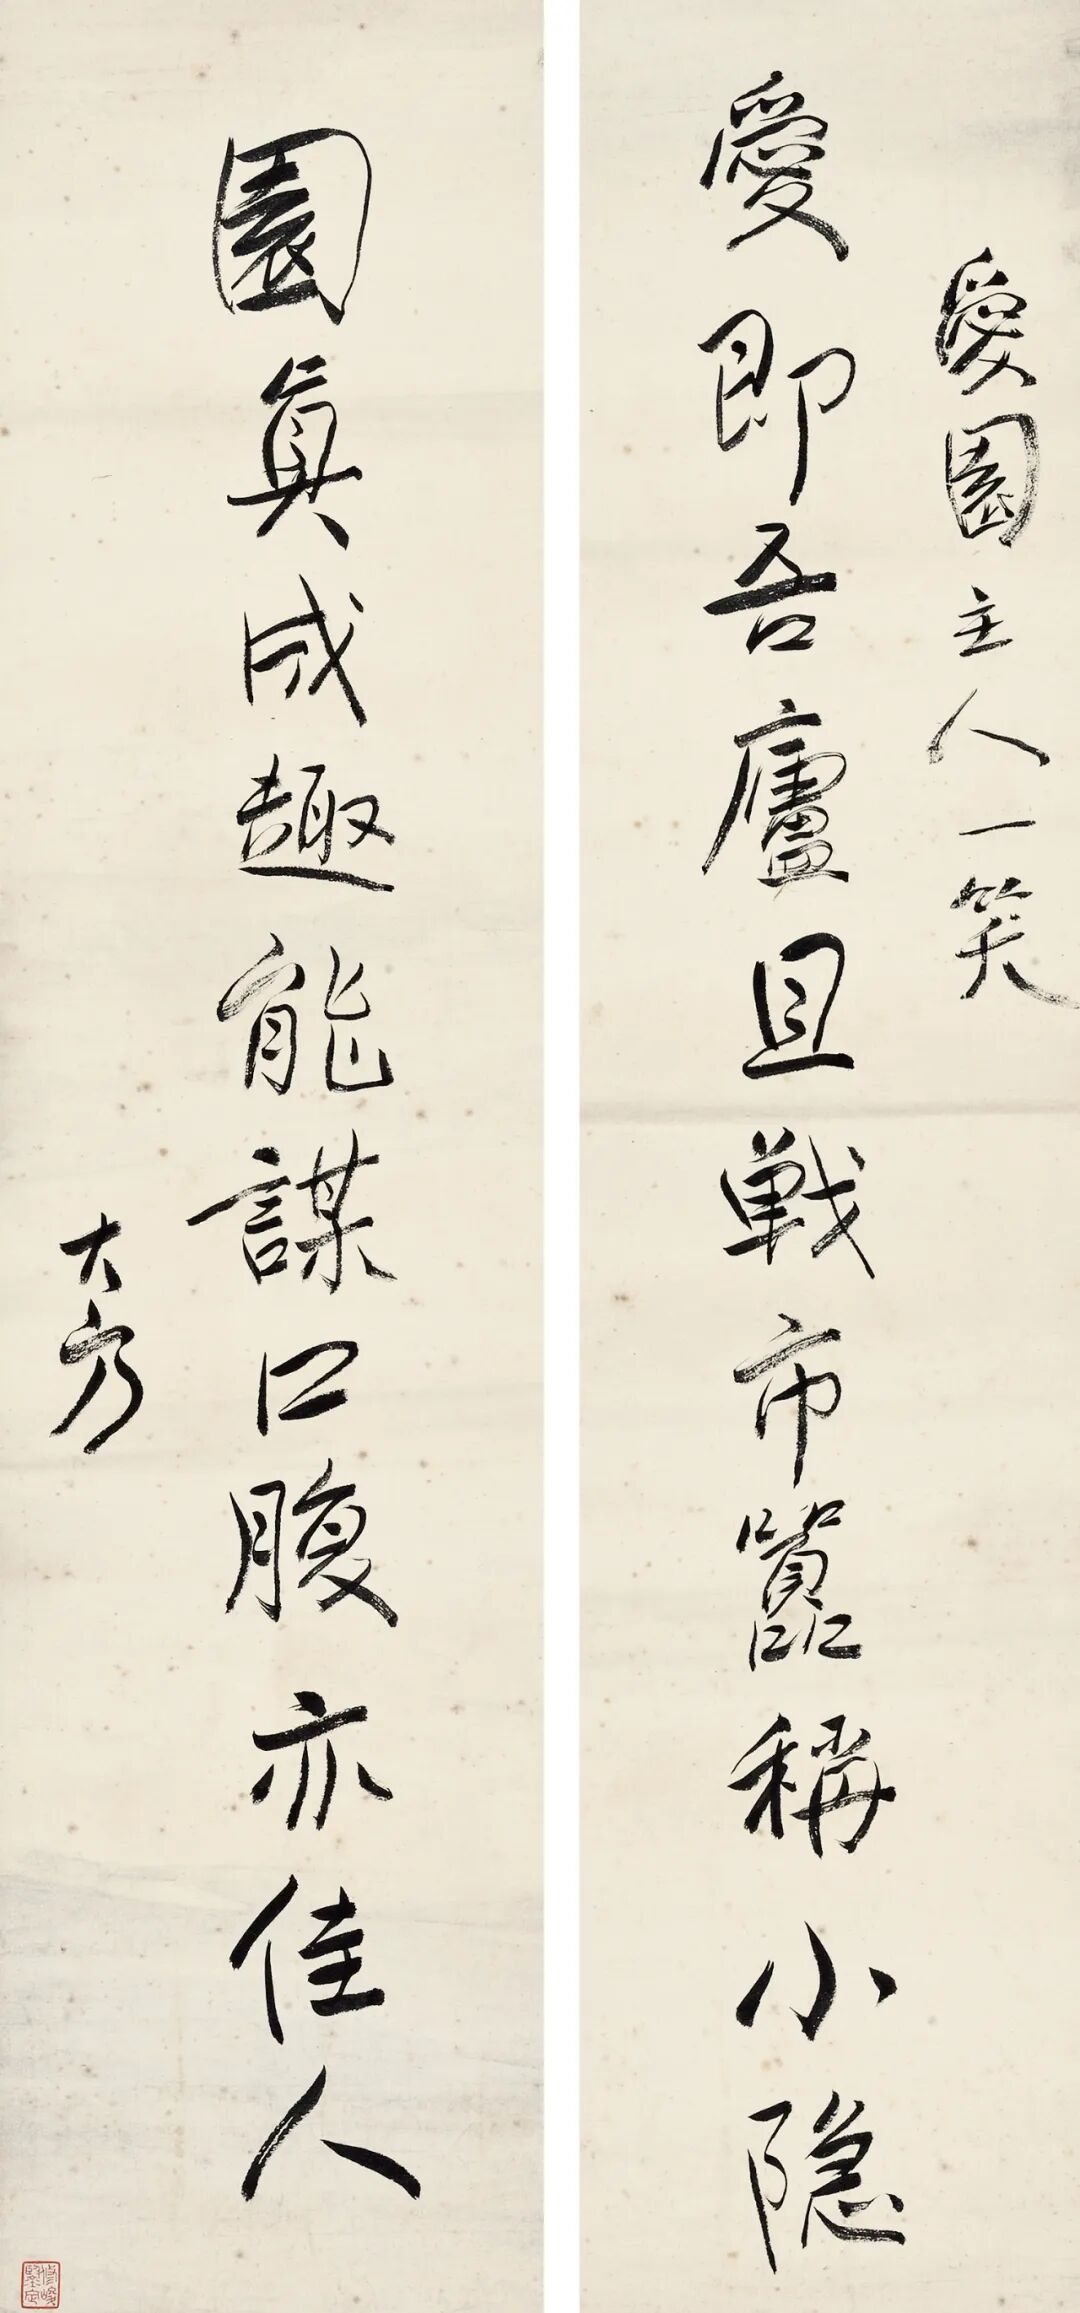 愛園主人一笑
愛即吾廬且戰市囂稱小隱
園真成趣能謀口腹亦佳人
大方